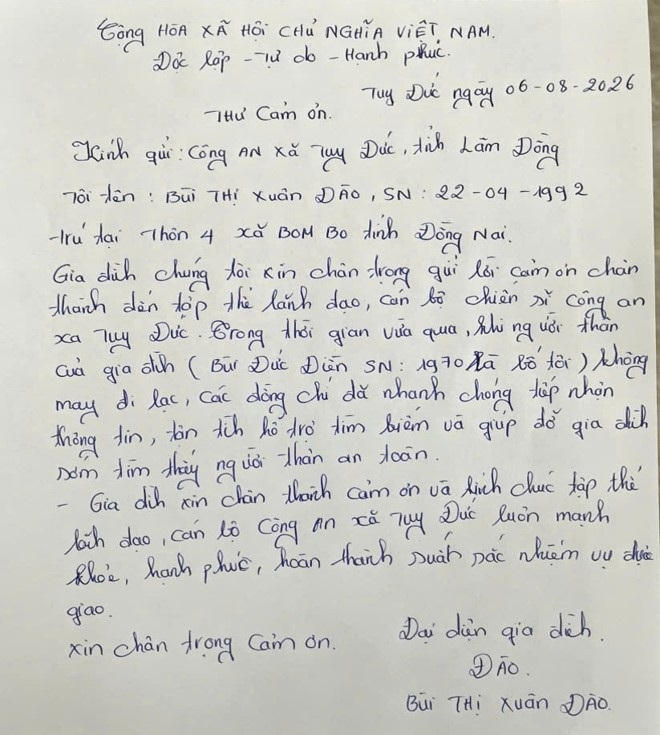 Cộng HÒA XÃ HỘI CHỦ NGHĨA VIỆT NAM.
Độc lập - Tự do - Hạnh phúc.
Tuy Đức ngày 06-08-2026
THƯ Cảm ơn.
Kính gửi: Công AN xã Tuy Đức, tỉnh Lâm Đồng
Tôi tên: BÙI THị Xuân ĐÀO, SN: 22-04-1992
-trú tại Thôn 4 xã BOM BO tỉnh Đồng Nai.
Gia đình chúng tôi xin chân trọng gửi lời cảm ơn chân
thành đến tập thể lãnh đạo, cán bộ chiến sĩ công an
xã Tuy Đức. Trong thời gian vừa qua, khi người thân
của gia đình (Bùi Đức Diễn SN: 1970 là bố tôi) không
may đi lạc, các đồng chí đã nhanh chóng tiếp nhận
thông tin, tận tình hỗ trợ tìm kiếm và giúp đỡ gia đình
sớm tìm thấy người thân an toàn.
- Gia đình xin chân thành cảm ơn và kính chúc tập thể
lãnh đạo, cán bộ Công An xã Tuy Đức luôn mạnh
khỏe, hạnh phúc, hoàn thành suất sắc nhiệm vụ được
giao.
xin chân trọng Cảm ơn.
Đại diện gia đình.
ĐÀO.
BÙI THị XUÂN ĐÀO.